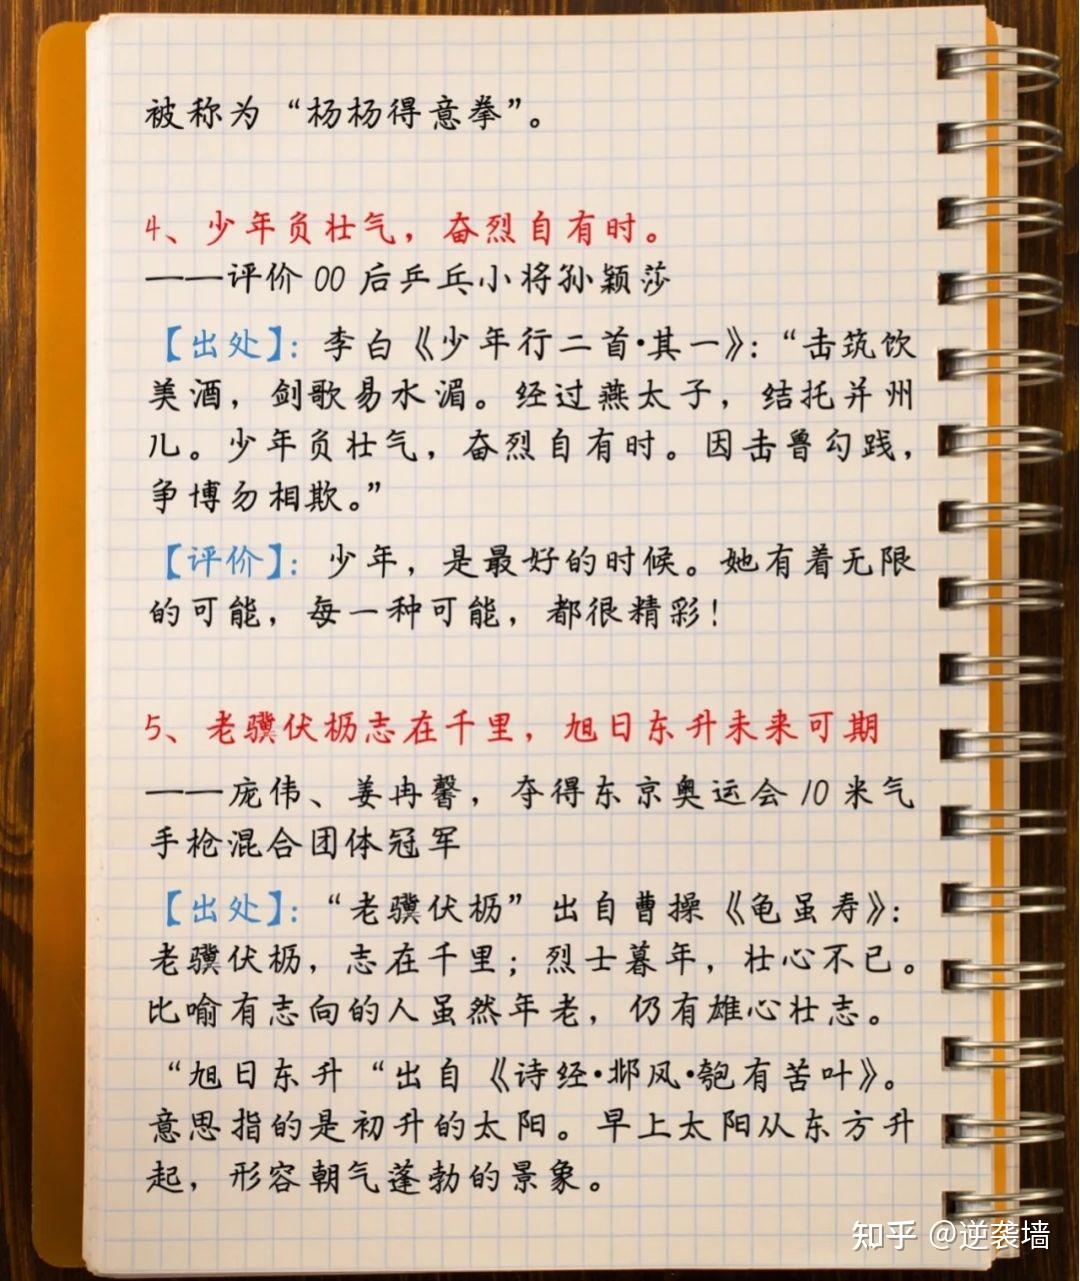 被称为“杨杨得意拳”。
4、少年负壮气，奋烈自有时。
——评价00后乒乓小将孙颖莎
【出处】：李白《少年行二首·其一》：“击筑饮
美酒，剑歌易水湄。经过燕太子，结托并州
儿。少年负壮气，奋烈自有时。因击鲁勾践，
争博勿相欺。”
【评价】：少年，是最好的时候。她有着无限
的可能，每一种可能，都很精彩！
5、老骥伏枥志在千里，旭日东升未来可期
——庞伟、姜冉馨，夺得东京奥运会10米气
手枪混合团体冠军
【出处】：“老骥伏枥”出自曹操《龟虽寿》：
老骥伏枥，志在千里；烈士暮年，壮心不已。
比喻有志向的人虽然年老，仍有雄心壮志。
“旭日东升“出自《诗经·邶风·匏有苦叶》。
意思指的是初升的太阳。早上太阳从东方升
起，形容朝气蓬勃的景象。
知乎 @逆袭墙